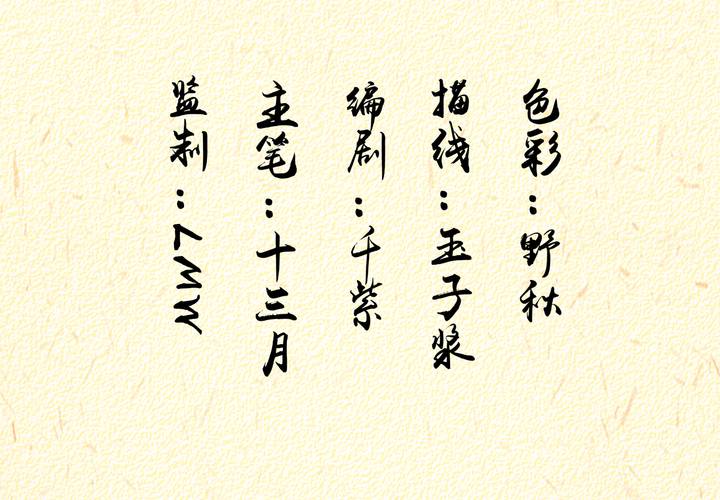 监制：LMW
主笔：十三月
编剧：千紫
描线：玉子浆
色彩：野秋